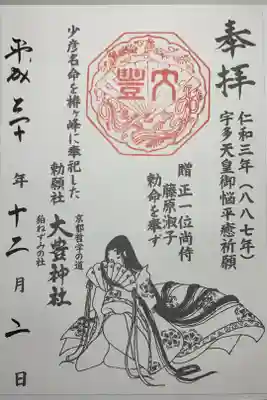 奉拝
仁和三年(八八七年)
宇多天皇御悩平癒祈願
贈正一位尚侍
藤原淑子
勅命を奉ず
大豊
少彦名命を椿ヶ峰に奉祀した
勅願社
京都哲学の道
大豊神社
狛ねずみの社
平成二十年十二月二日